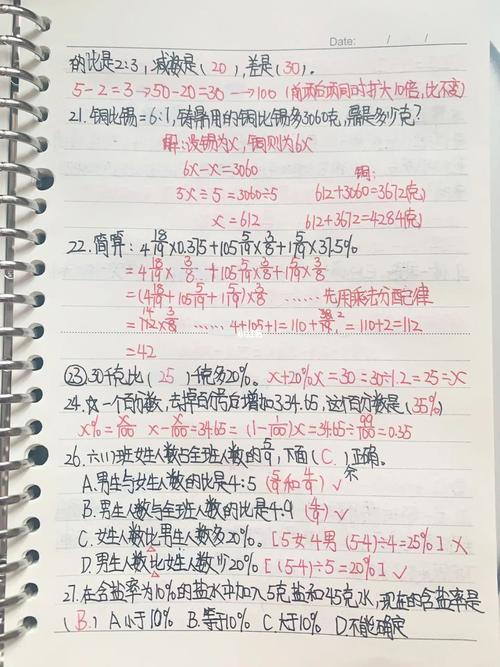 Date: / /
的比是2:3,减数是(20),差是(30)。
5-2=3→50-20=30→100(前两后两同时扩大10倍,比不变)
21.铜比锡=6:1,铸鼎用的铜比锡多3060克,鼎是多少克?
解:设锡为x,铜则为6x
6x-x=3060 铜:
5x÷5=3060÷5 612+3060=3672(克)
x=612 612+3672=4284(克)
22.简算:4 18/19×0.375+105 5/19×3/8+1 5/19×37.5%
=4 18/19×3/8+105 5/19×3/8+1 5/19×3/8
=(4 18/19+105 5/19+1 5/19)×3/8 ……先用乘法分配律
=112×3/8 …… 4+105+1=110+38/19=110+2=112
=42
㉓30千克比(25)千克多20%。x+20%x=30=30÷1.2=25=x
24.一个百分数,去掉百分号后增加334.65,这个百分数是(35%)
x%=x/100 x-x/100=34.65=(1-1/100)x=34.65÷99/100=0.35
26.六(1)班女生人数占全班人数的5/9,下面(C.)不正确。
A.男生与女生人数的比是4:5(5/9和4/9)✓
B.男生人数与全班人数的比是4:9(4/9)✓
C.女生人数比男生人数多20%。[5女4男(5-4)÷4=25%]✗
D.男生人数比女生人数少20%[(5-4)÷5=20%]✓
27.在含盐率为10%的盐水中加入5克盐和45克水,现在的含盐率是
(B.)A.小于10% B.等于10% C.大于10% D.不能确定